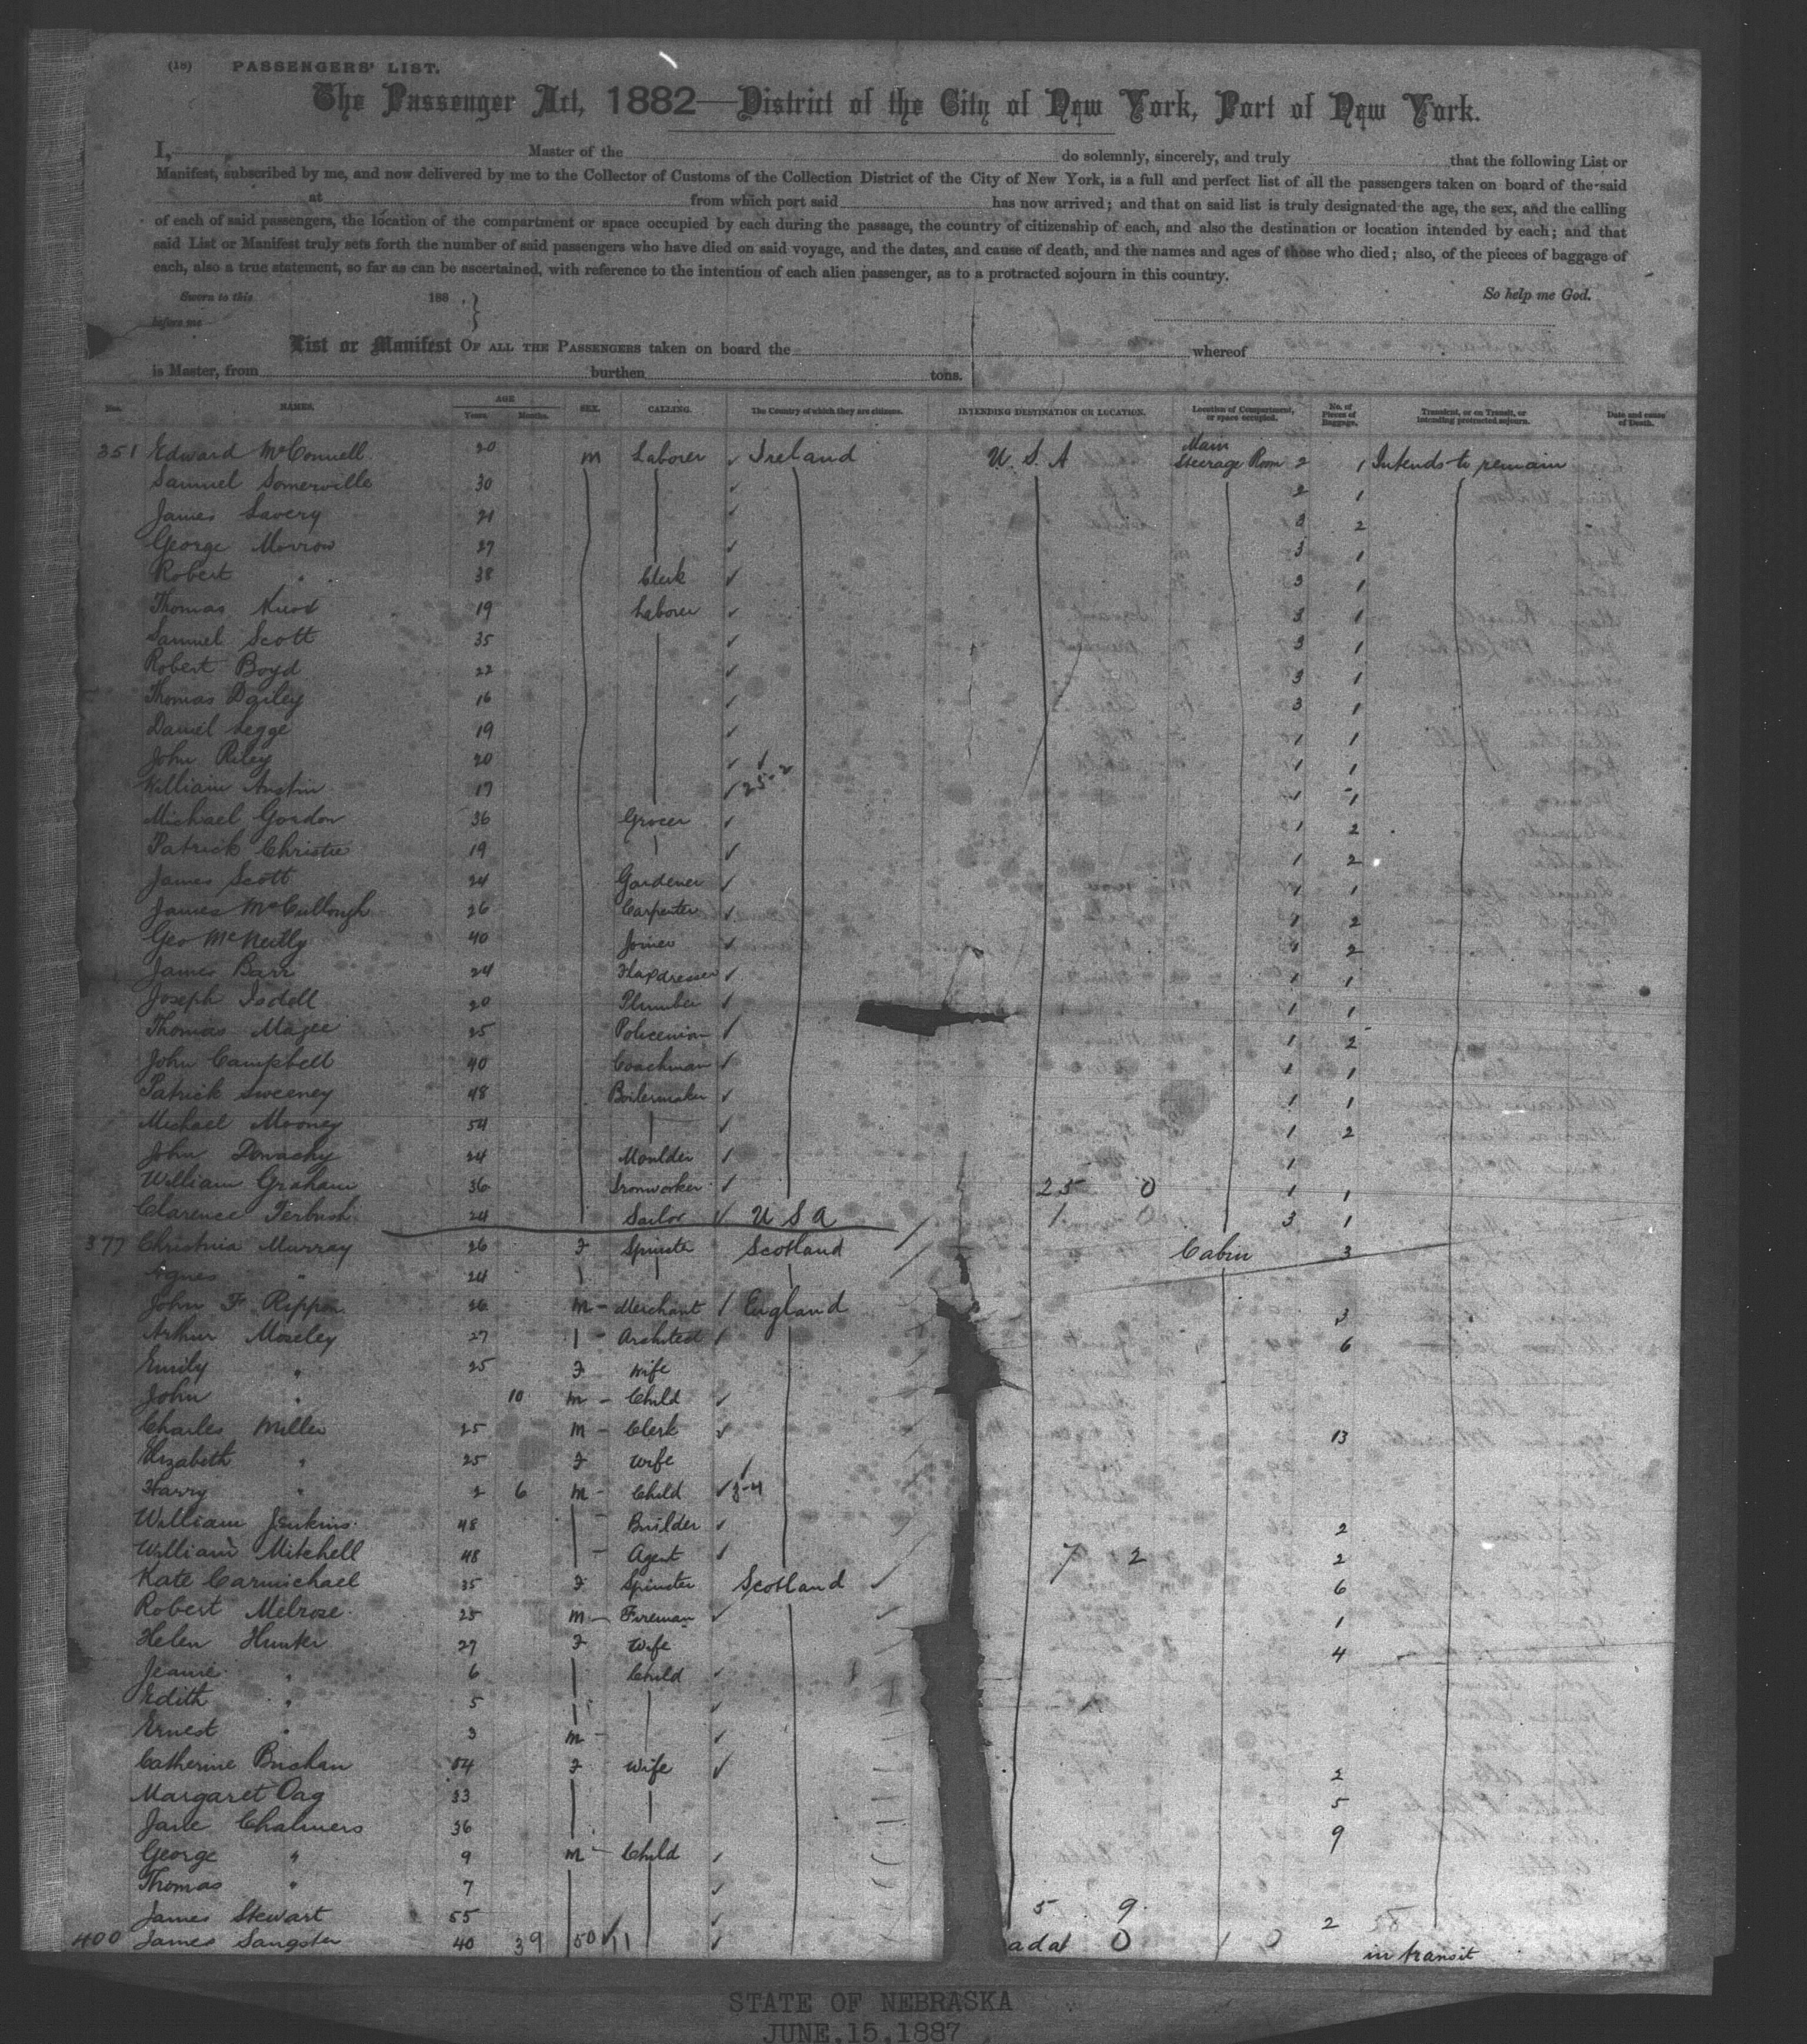 (18) PASSENGERS' LIST.
The Passenger Act, 1882—District of the City of New York, Port of New York.
I, Master of the do solemnly, sincerely, and truly that the following List or
Manifest, subscribed by me, and now delivered by me to the Collector of Customs of the Collection District of the City of New York, is a full and perfect list of all the passengers taken on board of the said
at from which port said has now arrived; and that on said list is truly designated the age, the sex, and the calling
of each of said passengers, the location of the compartment or space occupied by each during the passage, the country of citizenship of each, and also the destination or location intended by each; and that
said List or Manifest truly sets forth the number of said passengers who have died on said voyage, and the dates, and cause of death, and the names and ages of those who died; also, of the pieces of baggage of
each, also a true statement, so far as can be ascertained, with reference to the intention of each alien passenger, as to a protracted sojourn in this country.
Sworn to this 188 , } So help me God.
before me
List or Manifest OF ALL THE PASSENGERS taken on board the whereof
is Master, from burthen tons.
Nos. NAMES. AGE Years. Months. SEX. CALLING. The Country of which they are citizens. INTENDING DESTINATION OR LOCATION. Location of Compartment, or space occupied. No. of Pieces of Baggage. Transient, or on Transit, or intending protracted sojourn. Date and cause of Death.
351 Edward McConnell 20 m Laborer ✓ Ireland U.S.A Main Steerage Room 2 1 Intends to remain
Samuel Somerville 30 ✓ 2 1
James Lavery 21 ✓ 3 2
George Morrow 27 ✓ 3 1
Robert " 38 Clerk ✓ 3 1
Thomas Knox 19 Laborer ✓ 3 1
Samuel Scott 35 ✓ 3 1
Robert Boyd 22 ✓ 3 1
Thomas Dailey 16 ✓ 3 1
Daniel Legge 19 ✓ 1 1
John Riley 20 ✓ ✓ 1 1
William Austin 17 ✓ 25-2 1 1
Michael Gordon 36 Grocer ✓ 1 2
Patrick Christie 19 ✓ 1 2
James Scott 24 Gardener ✓ 1 1
James McCullough 26 Carpenter ✓ 1 2
Geo McNeilly 40 Joiner ✓ 1 2
James Barr 24 Flaxdresser ✓ 1 1
Joseph Isdell 20 Plumber ✓ 1 1
Thomas Magee 25 Policeman ✓ 1 2
John Campbell 40 Coachman ✓ 1 1
Patrick Sweeney 48 Boilermaker ✓ 1 1
Michael Mooney 54 ✓ 1 2
John Donachy 24 Moulder ✓ 1
William Graham 36 Ironworker ✓ 25 0 1 1
Clarence Terbush 24 Sailor ✓ U S A 1 0 3 1
377 Christina Murray 26 F Spinster Scotland Cabin 3
Agnes " 24
John F Rippon 26 M - Merchant ✓ England 3
Arthur Moseley 27 - Architect ✓ 6
Emily " 25 F Wife
John " 10 M - Child ✓
Charles Miller 25 M - Clerk ✓ 13
Elizabeth " 25 F Wife ✓
Harry " 2 6 M - Child ✓ 3-4
William Jenkins 48 - Builder ✓ 2
William Mitchell 48 - Agent ✓ 7 2 2
Kate Carmichael 35 F Spinster Scotland ✓ 6
Robert Melrose 25 M - Fireman ✓ 1
Helen Hunter 27 F Wife 4
Jeanie " 6 Child ✓
Edith " 5 ✓
Ernest " 3 M - ✓
Catherine 54 F Wife ✓ 2
Margaret Oag 33 5
Jane Chalmers 36 9
George " 9 M - Child ✓
Thomas " 7 ✓
James Stewart 55 ✓ 5 9 2 58
400 James Sangster 40 39 50 ✓ 11 ✓ adat 0 1 0 in transit
STATE OF NEBRASKA
JUNE.15.1887